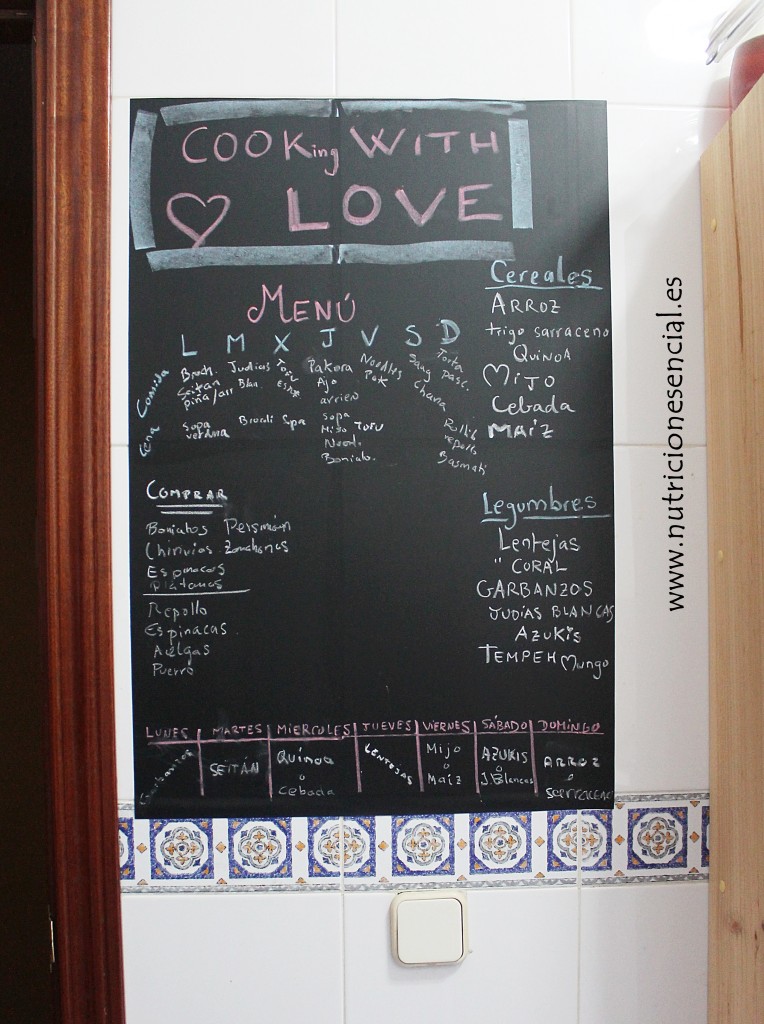 COOKing WITH
LOVE
MENÚ
L M X J V S D
Comida
Cena
Broch.
Seitan
piña/arr
Sopa
verdura
Judias
Blan.
Brocoli
Tofu
Sopa
Pakora
Ajo
arriero
sopa
Miso
Nood.
Boniato.
Noodles
Pak
Tofu
Sang
Chana
Torta
pasc.
Rollito
repollo
Basmati
Cereales
ARROZ
trigo sarraceno
QUINOA
MIJO
Cebada
MAÍZ
COMPRAR
Boniatos Persimón
Chirivías Zanahorias
Espinacas
Plátanos
Repollo
Espinacas
Acelgas
Puerro
Legumbres
Lentejas
" CORAL
GARBANZOS
JUDÍAS BLANCAS
AZUKIS
TEMPEH Mungo
LUNES MARTES MIERCOLES JUEVES VIERNES SÁBADO DOMINGO
Garbanzos
SEITÁN
Quinoa
o
Cebada
LENTEJAS
Mijo
o
Maíz
AZUKIS
o
J.Blancas
ARROZ
o
SARRACENO
www.nutricionesencial.es